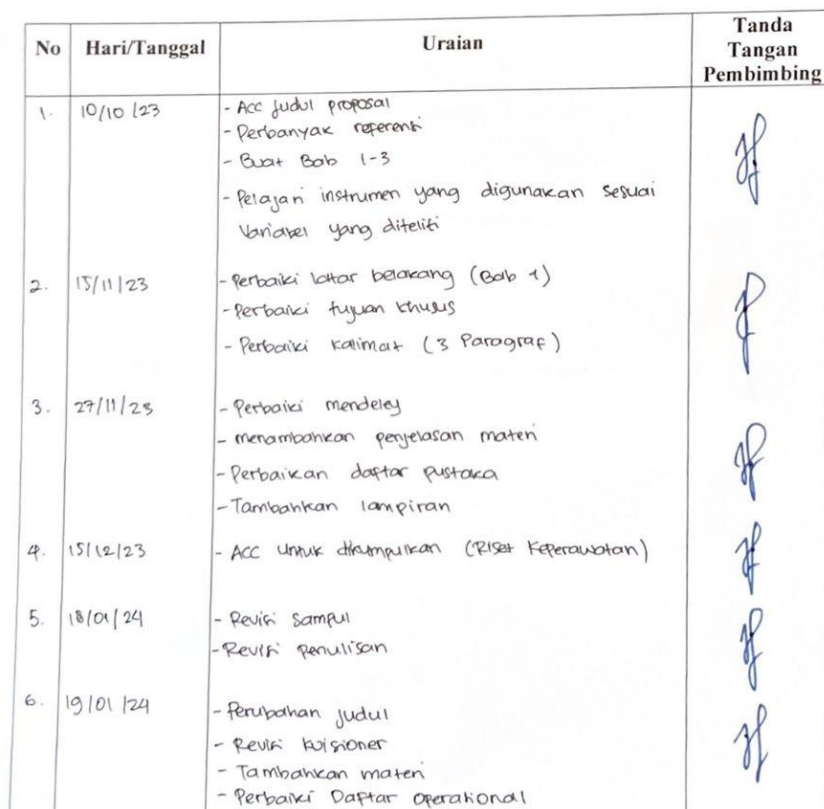 No Hari/Tanggal Uraian Tanda Tangan Pembimbing
1. 10/10/23 - Acc Judul proposal
- Perbanyak referensi
- Buat Bab 1-3
- Pelajari instrumen yang digunakan sesuai
Variabel yang diteliti
2. 15/11/23 - Perbaiki latar belakang (Bab 1)
- Perbaiki tujuan khusus
- Perbaiki kalimat (3 Paragraf)
3. 27/11/23 - Perbaiki mendeley
- menambahkan penjelasan materi
- Perbaikan daftar pustaka
- Tambahkan lampiran
4. 15/12/23 - ACC untuk dikumpulkan (Riset Keperawatan)
5. 18/01/24 - Revisi Sampul
- Revisi Penulisan
6. 19/01/24 - Perubahan judul
- Revisi kuisioner
- Tambahkan materi
- Perbaiki Daftar Operational